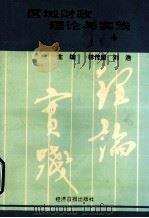 区域财政
理论与实践
主编
理論
實踐
经济日报出版社